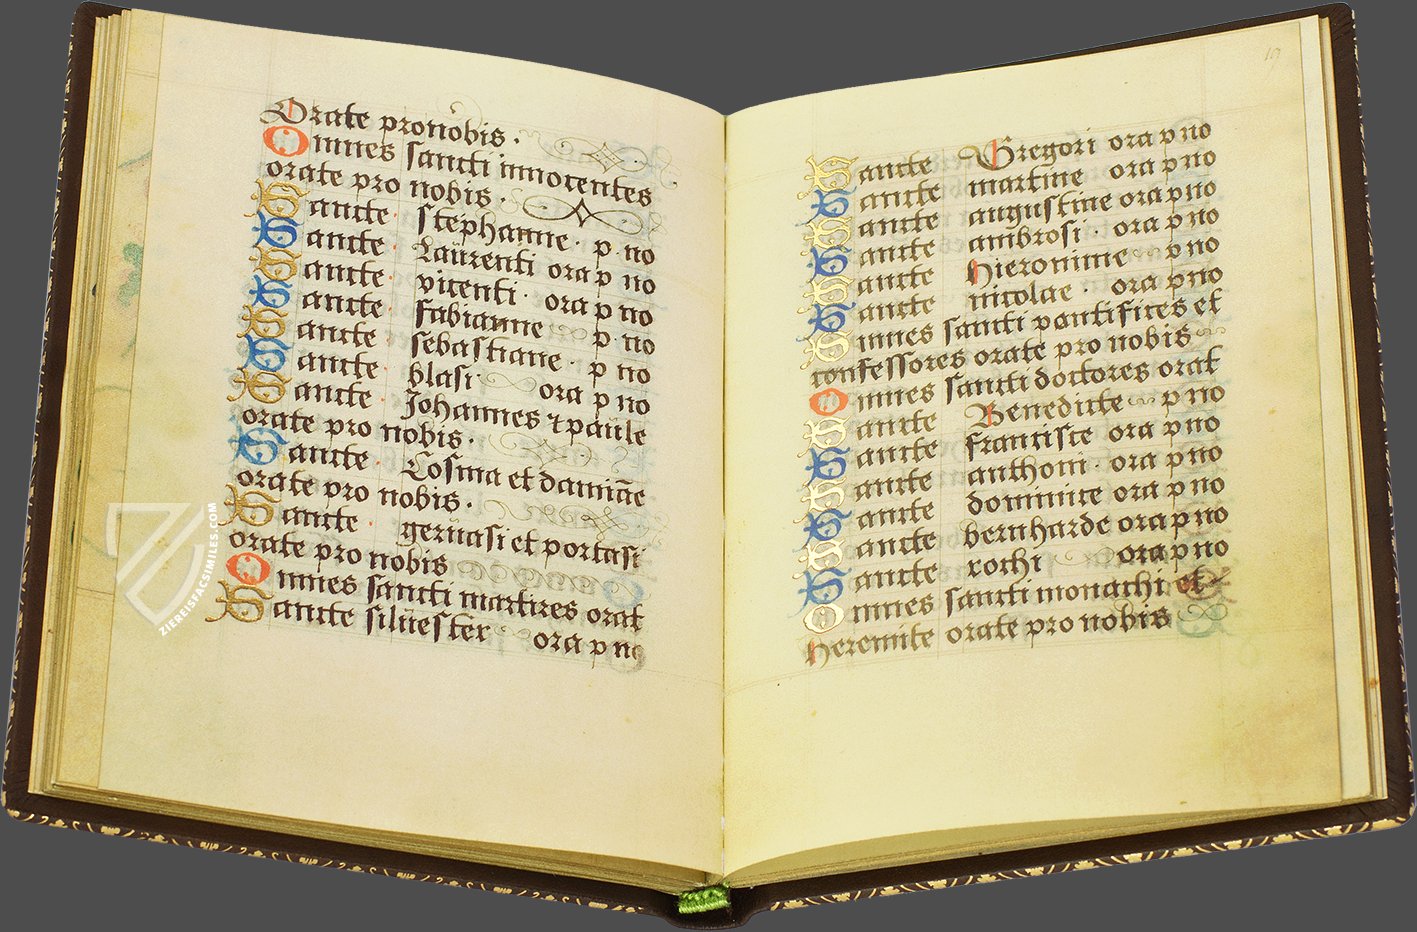 Orate pro nobis ·
Omnes sancti innocentes
orate pro nobis ·
Sancte · stephanne · p no
Sancte · Laurenti ora p no
Sancte · vicenti · ora p no
Sancte · fabianne p no
Sancte sebastiane · p no
Sancte · blasi ora p no
Sancte · Johannes et paule
orate pro nobis ·
Sancte · Cosma et damiāe
orate pro nobis ·
Sancte · geruasi et portasi
orate pro nobis
Omnes sancti martires orat
Sancte siluester ora p no
19
Sancte Gregori ora p no
Sancte martine ora p no
Sancte augustine ora p no
Sancte ambrosi · ora p no
Sancte hieronime p no
Sancte nicolae · ora p no
Omnes sancti pontifices et
confessores orate pro nobis
Omnes sancti doctores orat
Sancte Benedicte p no
Sancte francisce ora p no
Sancte anthoni · ora p no
Sancte dominice ora p no
Sancte bernharde ora p no
Sancte rochi ora p no
Omnes sancti monachi et
heremite orate pro nobis
ZIEREISFACSIMILES.COM